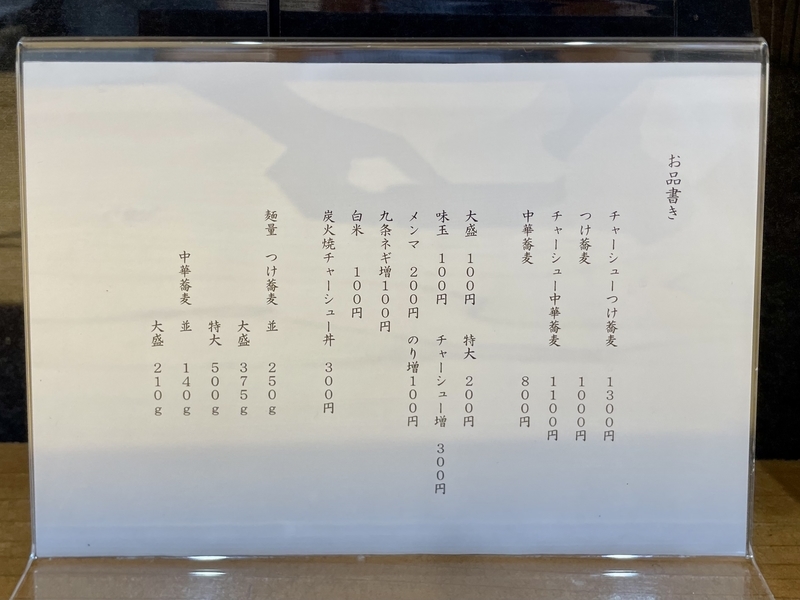 お品書き
チャーシューつけ蕎麦 1300円
つけ蕎麦 1000円
チャーシュー中華蕎麦 1100円
中華蕎麦 800円
大盛 100円 特大 200円
味玉 100円 チャーシュー増 300円
メンマ 200円 のり増100円
九条ネギ増100円
白米 100円
炭火焼チャーシュー丼 300円
麺量 つけ蕎麦 並 250g
大盛 375g
特大 500g
中華蕎麦 並 140g
大盛 210g